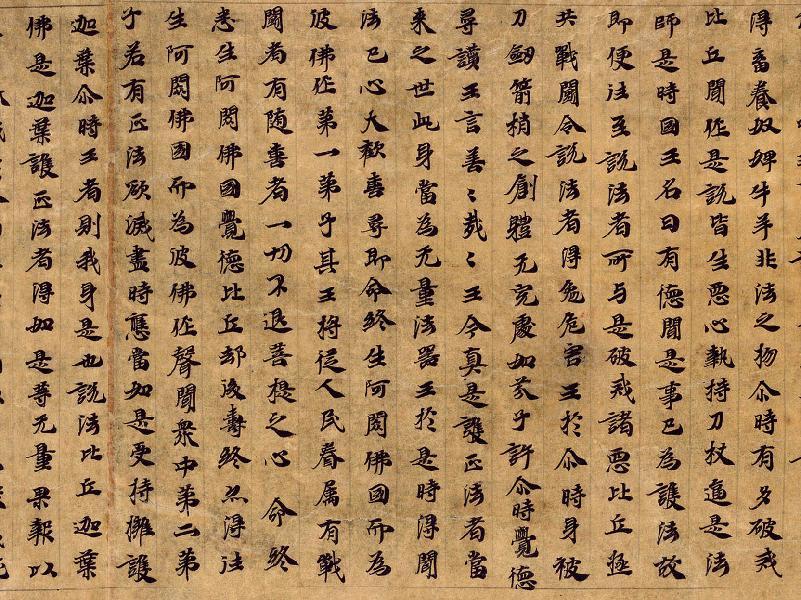 得畜養奴婢牛羊非法之物尒時有多破戒
比丘聞作是說皆生惡心執持刀杖逼是法
師是時國王名曰有德聞是事已為護法故
即便往至說法者所与是破戒諸惡比丘極
共戰鬪令說法者得免危害王於尒時身被
刀劒箭矟之創體无完處如芥子許尒時覺德
尋讚王言善〻哉〻王今真是護正法者當
来之世此身當為无量法器王於是時得聞
法已心大歡喜尋即命終生阿閦佛國而為
彼佛作第一弟子其王將從人民眷屬有戰
鬪者有随喜者一切不退菩提之心命終
悉生阿閦佛國覺德比丘却後壽終亦得往
生阿閦佛國而為彼佛作聲聞衆中第二弟
子若有正法欲滅盡時應當如是受持擁護
迦葉尒時王者則我身是也說法比丘迦葉
佛是迦葉護正法者得如是等无量果報以